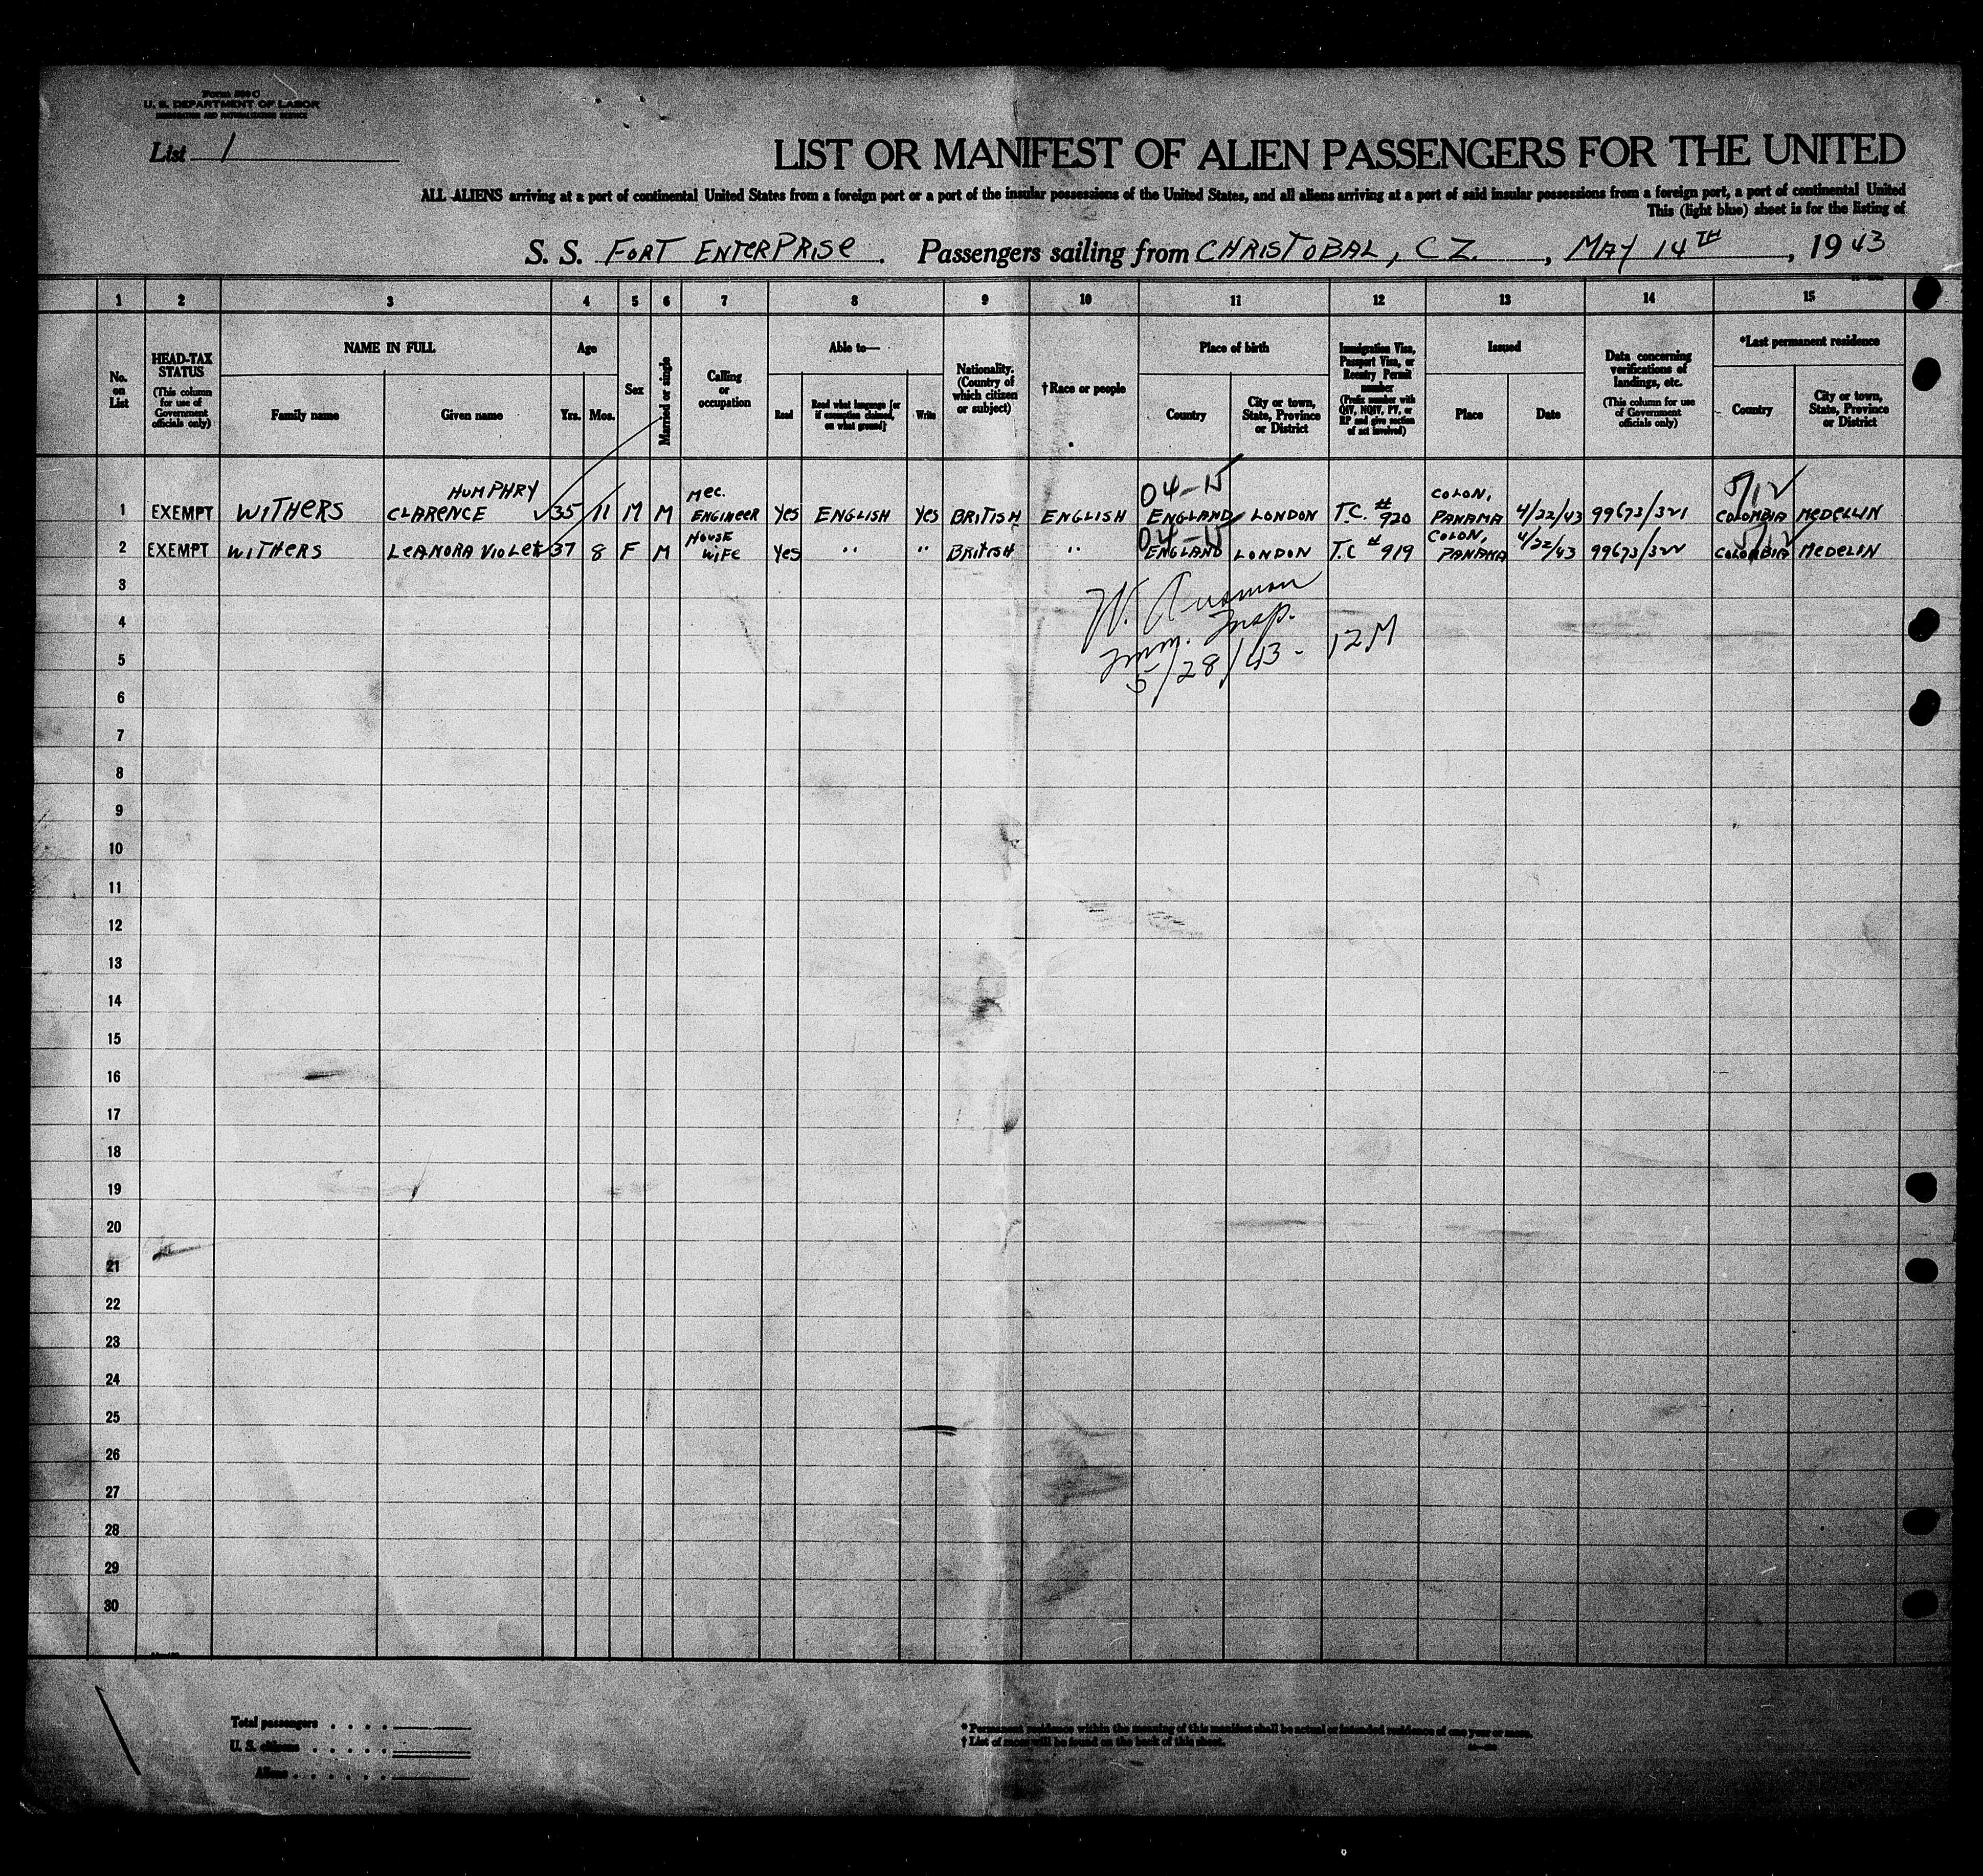 Form 500 C
U. S. DEPARTMENT OF LABOR
IMMIGRATION AND NATURALIZATION SERVICE
List 1
LIST OR MANIFEST OF ALIEN PASSENGERS FOR THE UNITED
ALL ALIENS arriving at a port of continental United States from a foreign port or a port of the insular possessions of the United States, and all aliens arriving at a port of said insular possessions from a foreign port, a port of continental United
This (light blue) sheet is for the listing of
S. S. FORT ENTERPRISE. Passengers sailing from CHRISTOBAL, CZ., MAY 14TH, 1943
1 2 3 4 5 6 7 8 9 10 11 12 13 14 15
No. on List
HEAD-TAX STATUS (This column for use of Government officials only)
NAME IN FULL
Family name Given name
Age
Yrs. Mos.
Sex
Married or single
Calling or occupation
Able to—
Read Read what language [or if exemption claimed, on what ground] Write
Nationality. (Country of which citizen or subject)
†Race or people
Place of birth
Country City or town, State, Province or District
Immigration Visa, Passport Visa, or Reentry Permit number (Prefix number with QIV, NQIV, PV, or RP and give section of act involved)
Issued
Place Date
Data concerning verifications of landings, etc. (This column for use of Government officials only)
*Last permanent residence
Country City or town, State, Province or District
1 EXEMPT WITHERS CLARENCE HUMPHRY 35 11 M M MEC. ENGINEER Yes ENGLISH Yes BRITISH ENGLISH 04-15 ENGLAND LONDON T.C. # 920 COLON, PANAMA 4/22/43 99673/321 5/12 COLOMBIA MEDELLIN
2 EXEMPT WITHERS LEANORA VIOLET 37 8 F M HOUSE WIFE Yes " " BRITISH " 04-15 ENGLAND LONDON T.C # 919 COLON, PANAMA 4/22/43 99673/322 5/12 COLOMBIA MEDELIN
3
4
5
6
7
8
9
10
11
12
13
14
15
16
17
18
19
20
21
22
23
24
25
26
27
28
29
30
Imm. Insp.
5/28/43 - 12 M
Total passengers
U. S. citizens
Aliens
* Permanent residence within the meaning of this manifest shall be actual or intended residence of one year or more.
† List of races will be found on the back of this sheet.